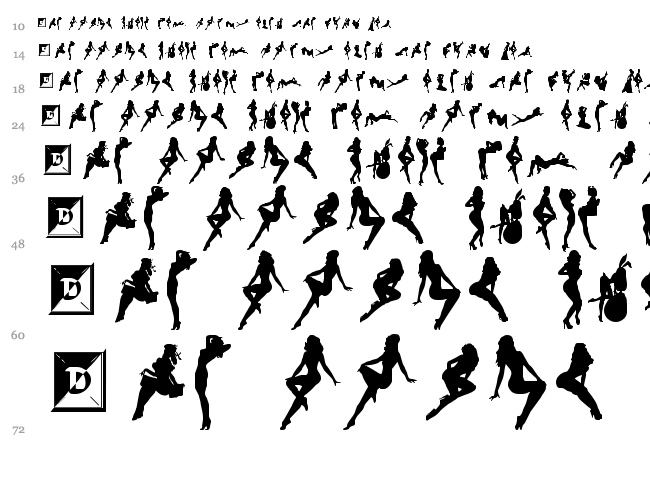 10
14
18
24
36
D
48
D
60
D
72
D